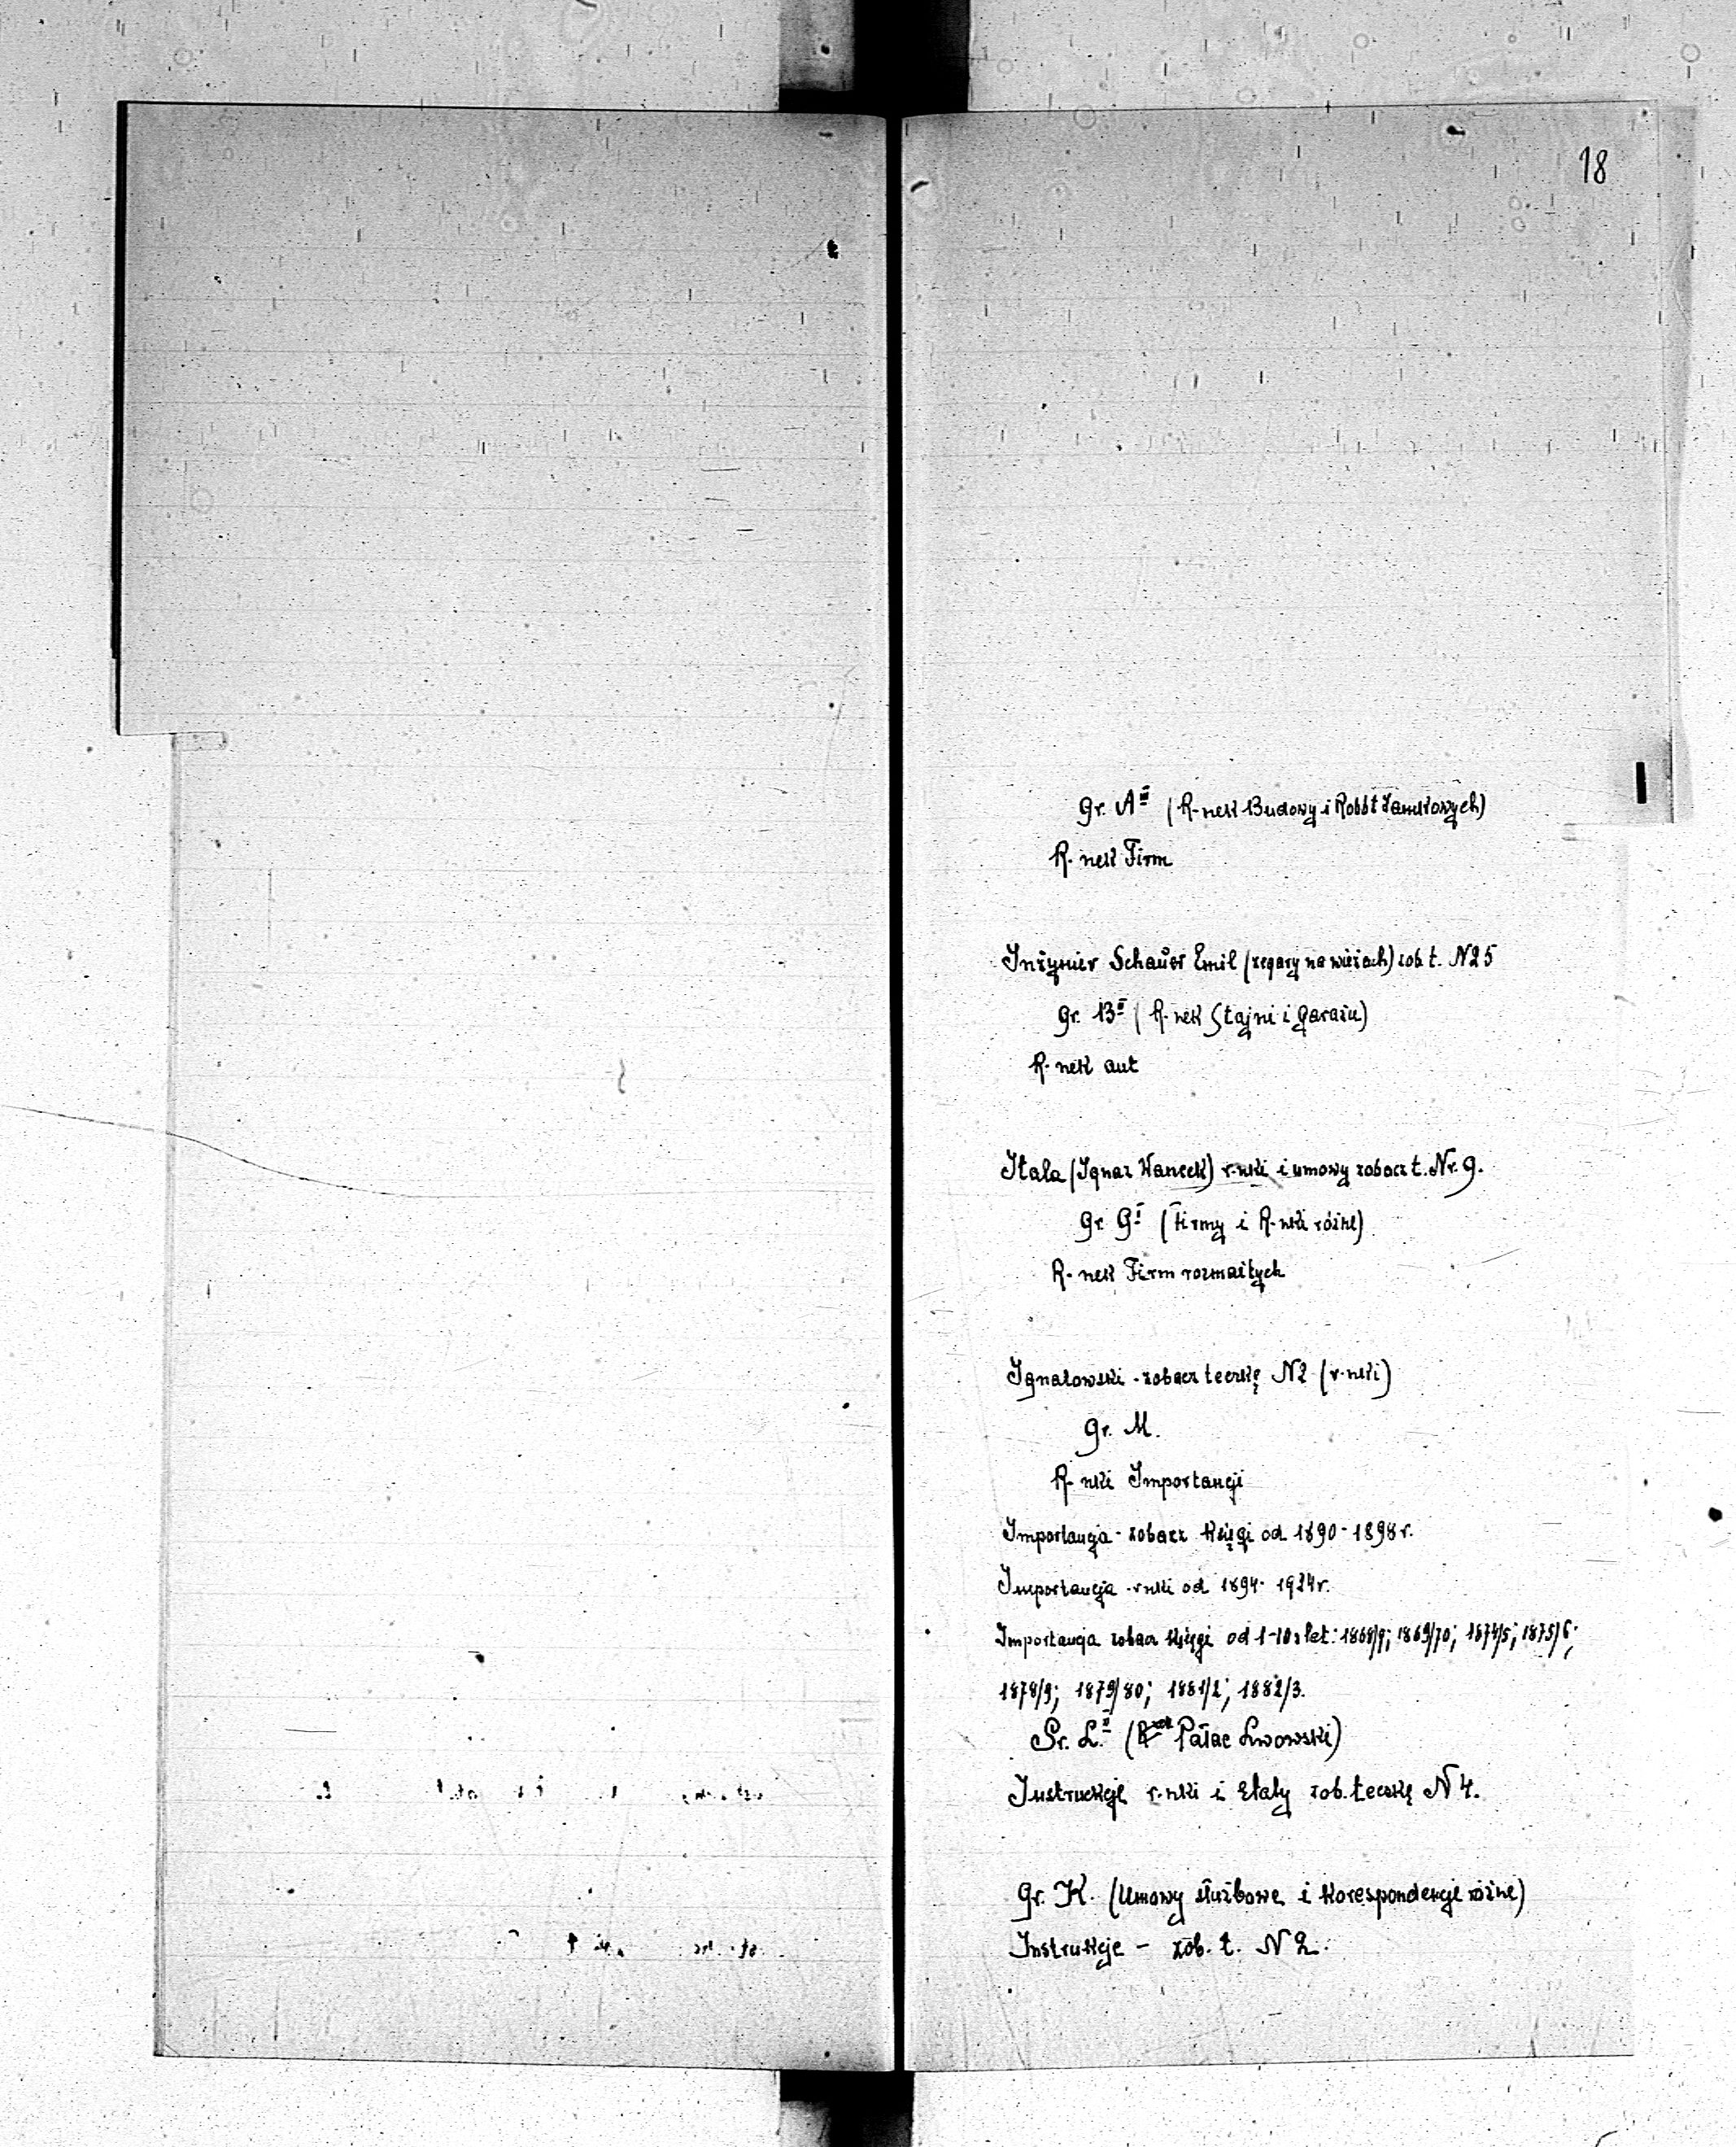 18
I
Gr. A III (R-nek Budowy i Robót Zamkowych)
R-nek Firm
Inżynier Schauer Emil (zegary na wieżach) zob. t. N 25
Gr. B II (R-nek Stajni i Garażu)
R-nek aut
Itala (Ignaz Wancek) r-nki i umowy zobacz t. Nr. 9.
Gr. G I (Firmy i R-nki różne)
R-nek Firm rozmaitych
Ignatowski - zobacz teczkę N 2 (r-nki)
Gr. M.
R-nki Importancji
Importancja - zobacz Księgi od 1890 - 1898 r.
Importancja - r-nki od 1894 - 1924 r.
Importancja zobacz Księgi od 1-10 z let: 1868/9; 1869/70; 1874/5; 1875/6;
1878/9; 1879/80; 1881/2; 1882/3.
Gr. L. II (Pałac Lwowski)
Instrukcje r-nki i Etaty zob. teczkę N 4.
Gr. K. (Umowy służbowe i Korespondencje różne)
Instrukcje - zob. t. N 2.